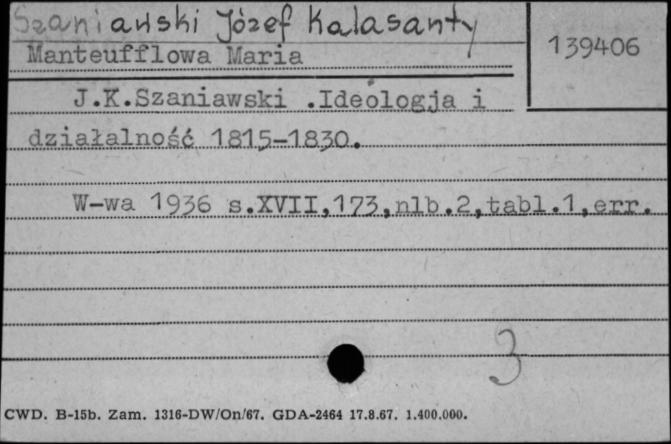 Szaniawski Józef Kalasanty
139406
Manteufflowa Maria
J.K.Szaniawski .Ideologja i
działalność 1815-1830.
W-wa 1936 s.XVII,173,nlb.2,tabl.1,err.
3
CWD. B-15b. Zam. 1316-DW/On/67. GDA-2464 17.8.67. 1.400.000.